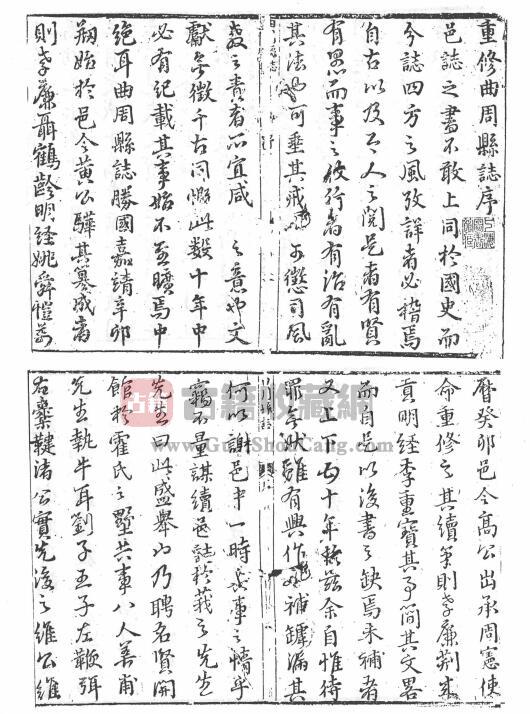 重修曲周縣誌序
邑誌之書不敢上同於國史而
今誌四方之風攷詳者必稽焉
自古以及今人之閱是者有賢
有愚而事之攸行者有治有亂
其法也可垂其戒也可懲司風
教之責者所宜咸之意也文
獻無徵千古同慨此數十年中
必有記載其事始不至曠焉中
絶耳曲周縣誌勝國嘉靖辛卯
剏始於邑令黃公驊其纂成者
則孝廉聶鶴齡明經姚舜愷萬
曆癸卯邑令高公出承周憲使
命重修之其續筆則孝廉荊來
貢明經李重寶其事簡其文畧
而自是以後書之缺焉未補者
又上下五十年於茲余自惟待
罪無狀雖有興作如補罅漏其
何以謝邑中一時長事之情乎
竊不量謀續邑誌於莪之先生
先生曰此盛舉也乃聘名賢開
館於霍氏之墅共事八人善甫
先生執牛耳劉子王子左鞭弭
右櫜鞬諸公實先後之維公維
古籍收藏网
GuJiShouCang.com